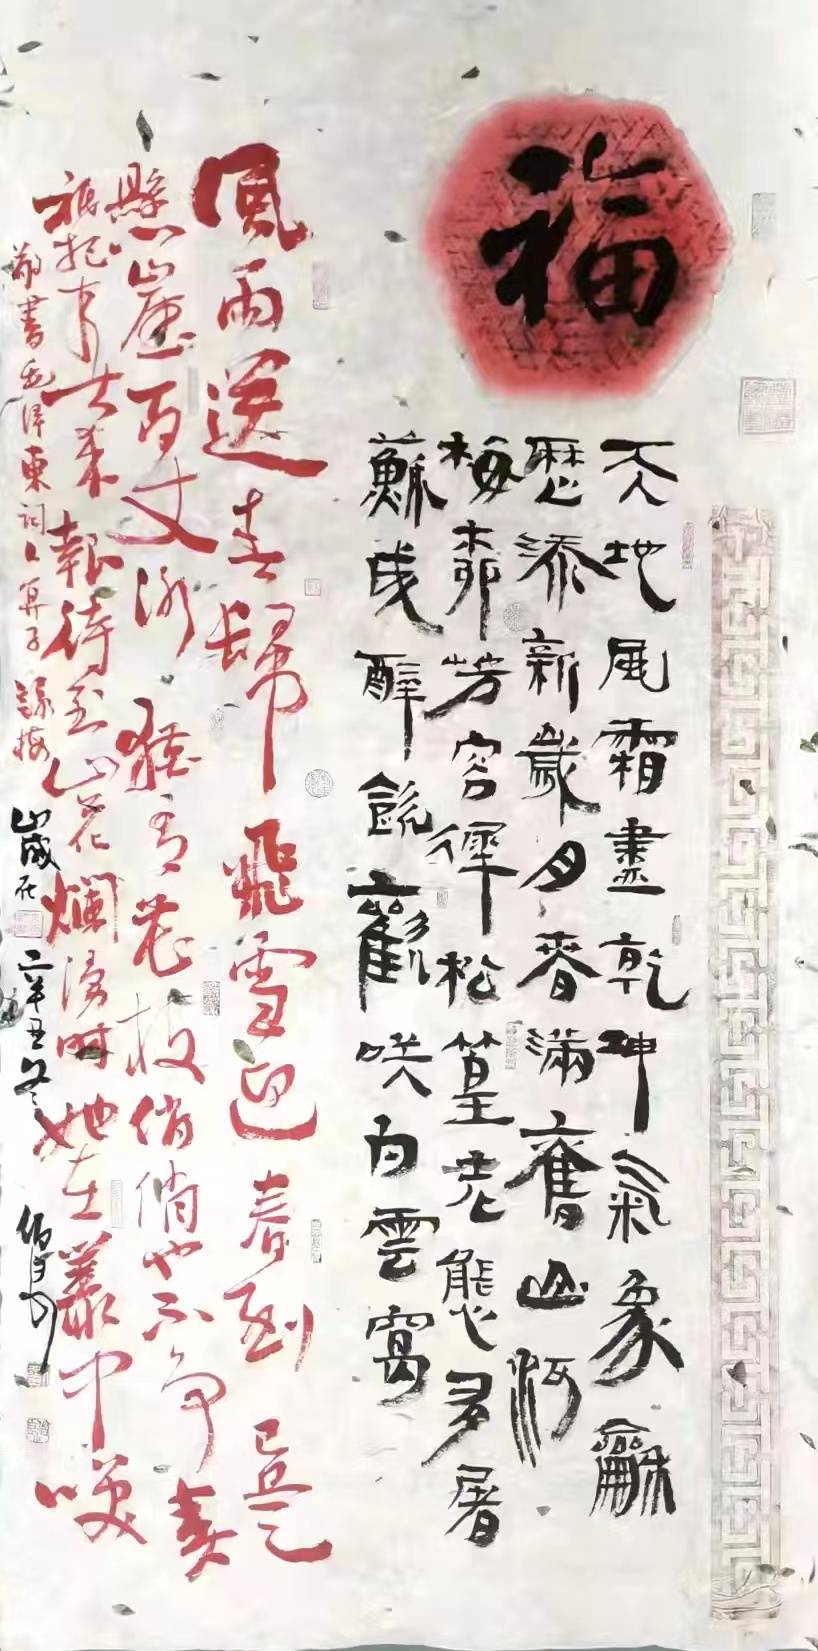 福
天地風霜盡乾坤氣象龢
歷添新歲月春滿舊山河
梅柳芳容穉松篁老態多屠
蘇成醉飲歡咲白雲窩
風雨送春歸飛雪迎春到已是
懸崖百丈冰猶有花枝俏俏也不爭春
祇把春來報待到山花爛漫時她在叢中咲
敬書毛澤東詞卜算子詠梅
歲在辛丑冬